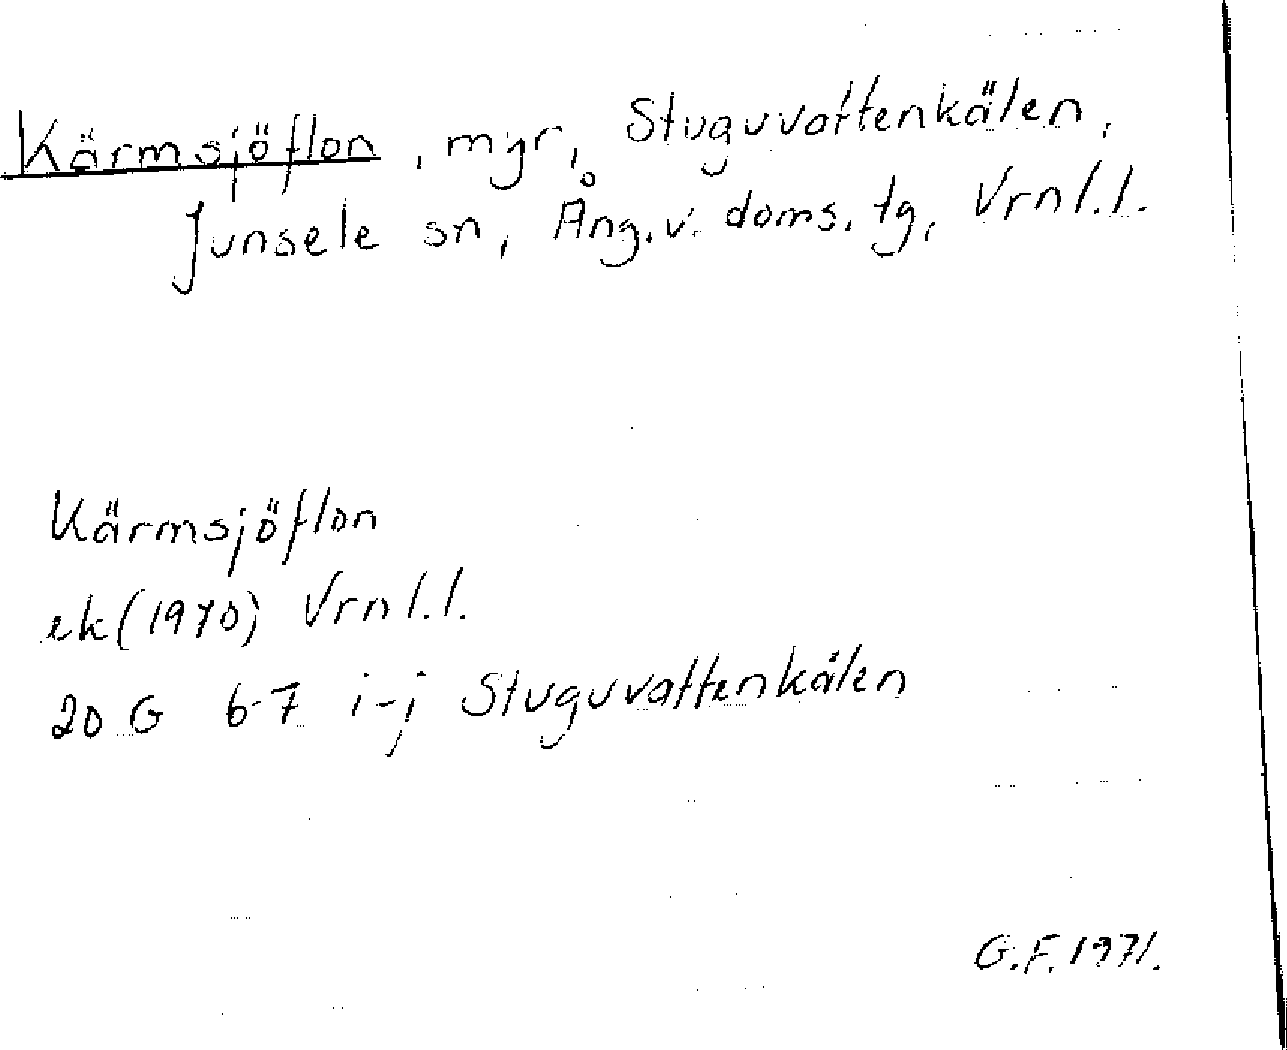 Kärmsjöflon, myr, Stuguvattenkälen,
Junsele sn, Ång.v. doms. tg, Vrnl.l.
Kärmsjöflon
ek (1970) Vrnl.l.
20 G 6-7 i-j Stuguvattenkälen
G.F. 1971.